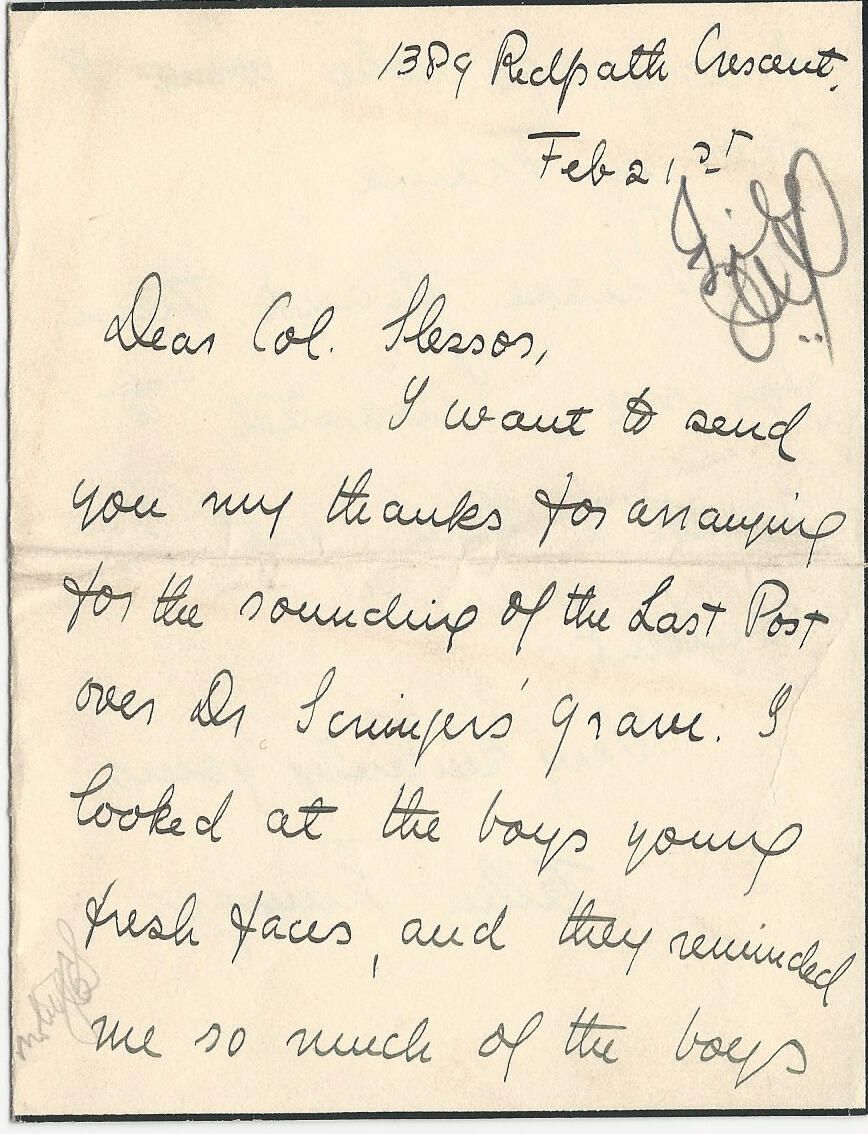 1389 Redpath Crescent,
Feb 21st
File
Dear Col. Slessor,
I want to send
you my thanks for arranging
for the sounding of the Last Post
over Dr Scrimgers' grave. I
looked at the boys young
fresh faces, and they reminded
me so much of the boys